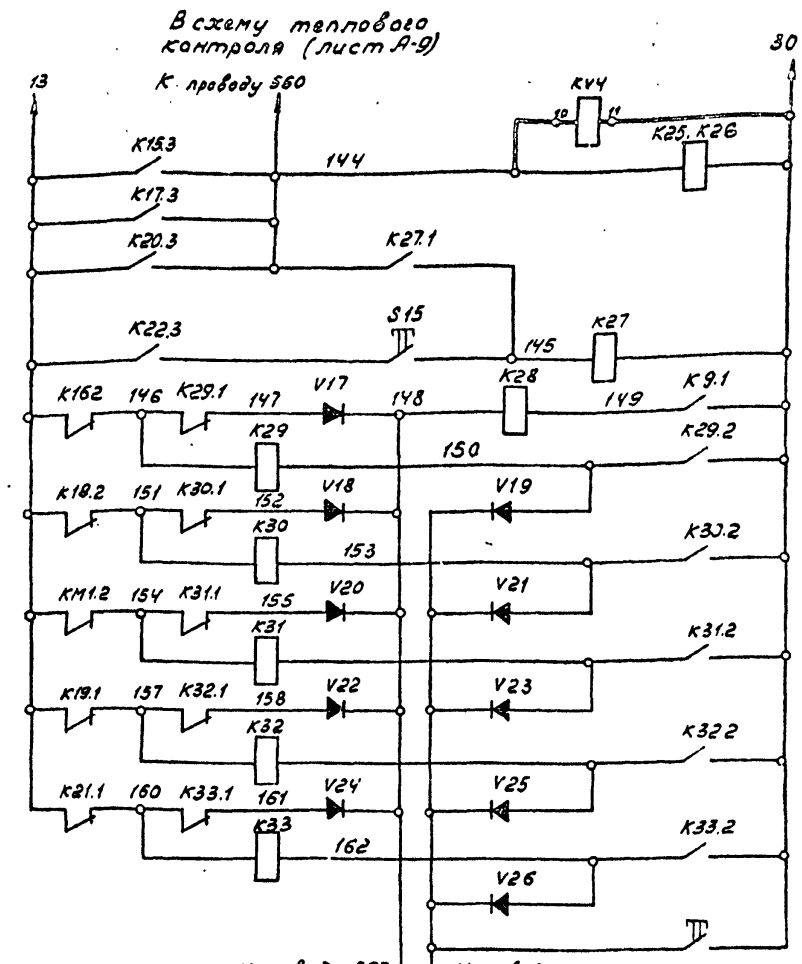 В схему теплового
контроля (лист А-9)
13
К проводу 560
80
KV4
10
11
K15.3
144
K25, K26
K17.3
K20.3
K27.1
K22.3
S15
145
K27
K162
146
K29.1
147
V17
148
K28
149
K9.1
K29
150
K29.2
K18.2
151
K30.1
152
V18
V19
K30
153
K30.2
KM1.2
154
K31.1
155
V20
V21
K31
K31.2
K19.1
157
K32.1
158
V22
V23
K32
K32.2
K21.1
160
K33.1
161
V24
V25
K33
162
K33.2
V26